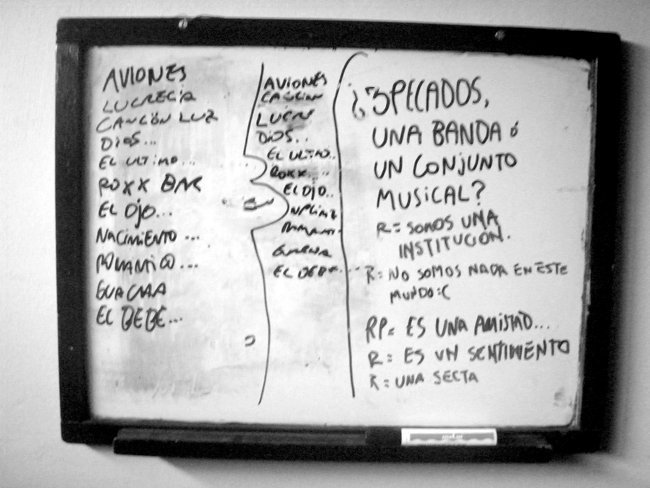 AVIONES
LUCRECIA
CANCIÓN LUZ
DIOS...
EL ULTIMO...
ROXX BAR
EL OJO...
NACIMIENTO...
ROMANTICO...
EL BEBE...
AVIONES
CANCIÓN
LUCRE
DIOS...
EL ULTIMO..
ROXX...
EL OJO..
EL BEBE...
¿3PECADOS,
UNA BANDA ó
UN CONJUNTO
MUSICAL?
R= SOMOS UNA
INSTITUCIÓN.
R= NO SOMOS NADA EN ESTE
MUNDO :C
RP= ES UNA AMISTAD...
R= ES UN SENTIMIENTO
R= UNA SECTA